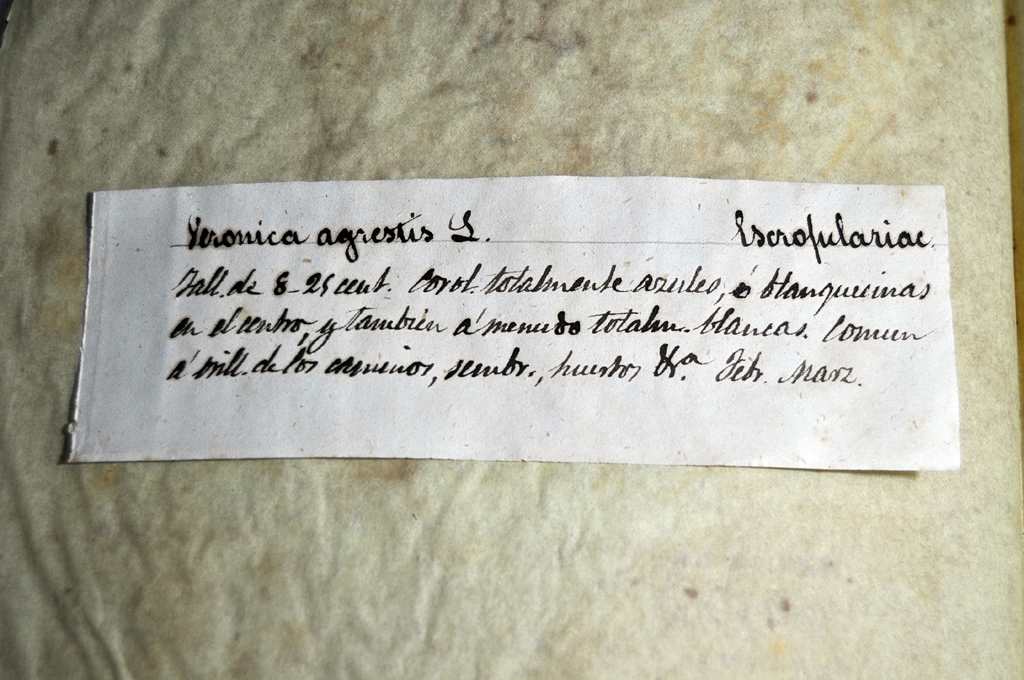 Veronica agrestis L. Escrofulariac.
Tall. de 8-25 cent. Corol. totalmente azules, ó blanquecinas
en el centro, y tambien á menudo totalm. blancas. Comun
á orill. de los caminos, sembr., huertos &ª. Febr. Marz.